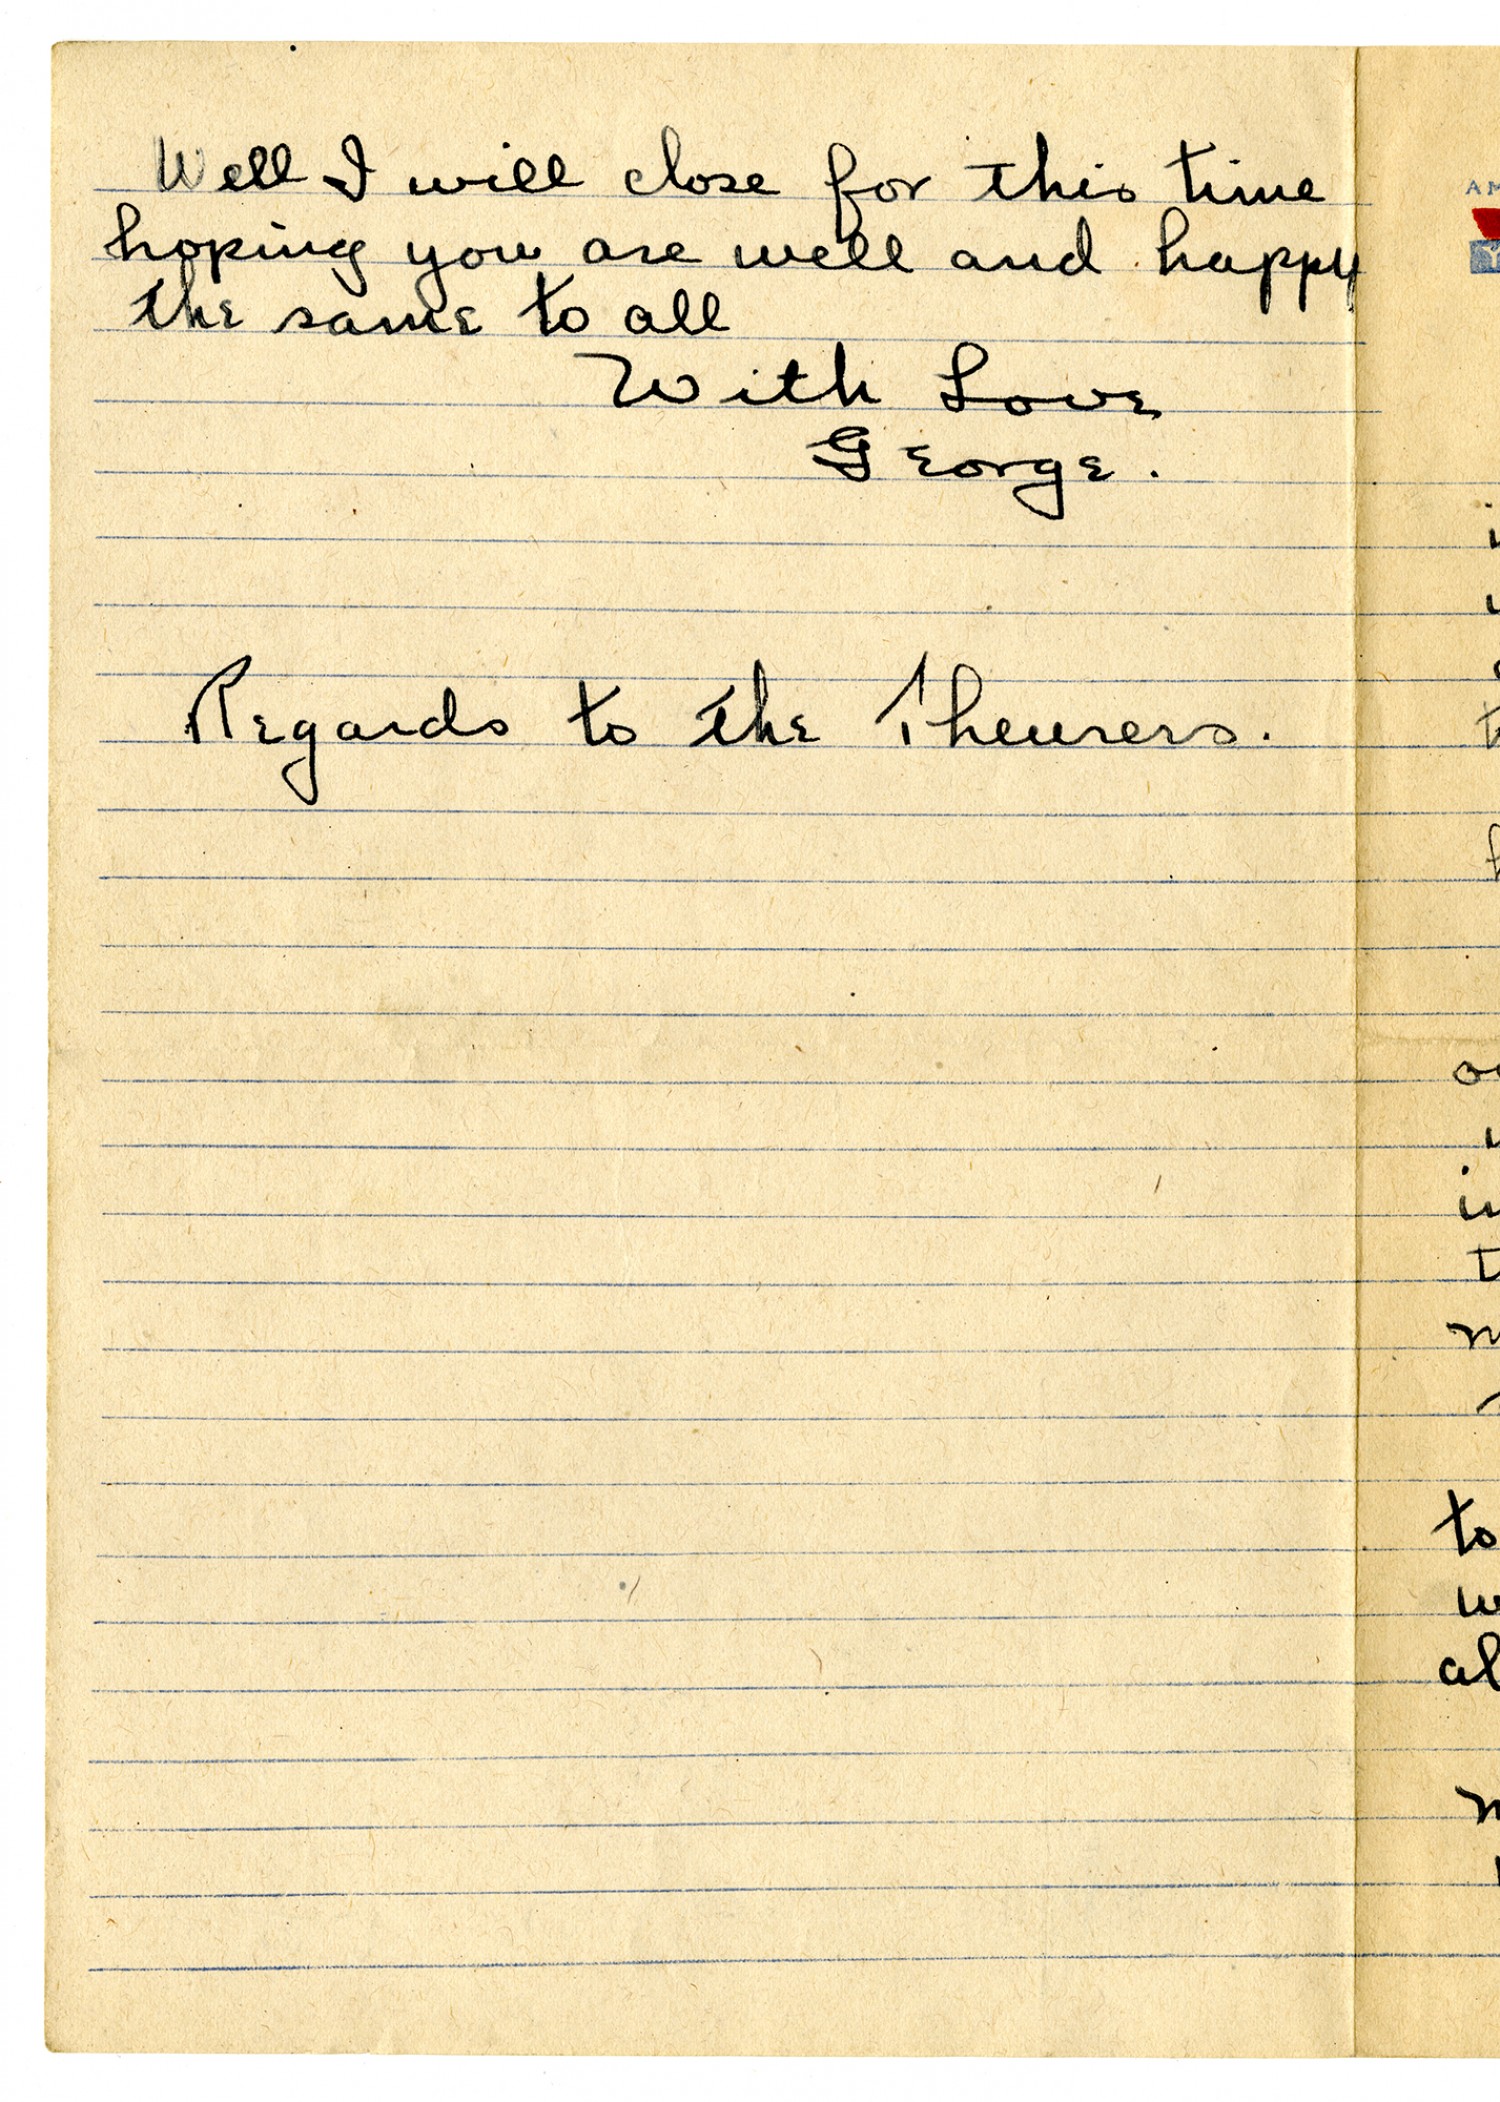 Well I will close for this time
hoping you are well and happy
the same to all
With Love
George.
Regards to the Theurers.
AM
Y
to
w
al